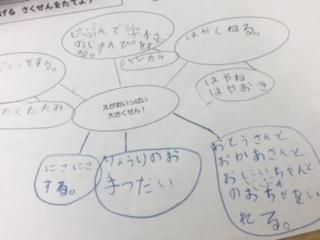 さくせんをたてよう
じぶんで学校
のじゅんびをす
る。
ハンカチ
はやくねる。
はやね
はやおき
せする。
たくたたみ
えがおいっぱい
大さくせん！
にこにこ
する。
りょうりのお
手つだい
おとうさんと
おかあさんと
おにいちゃんと
のおちゃをい
れる。